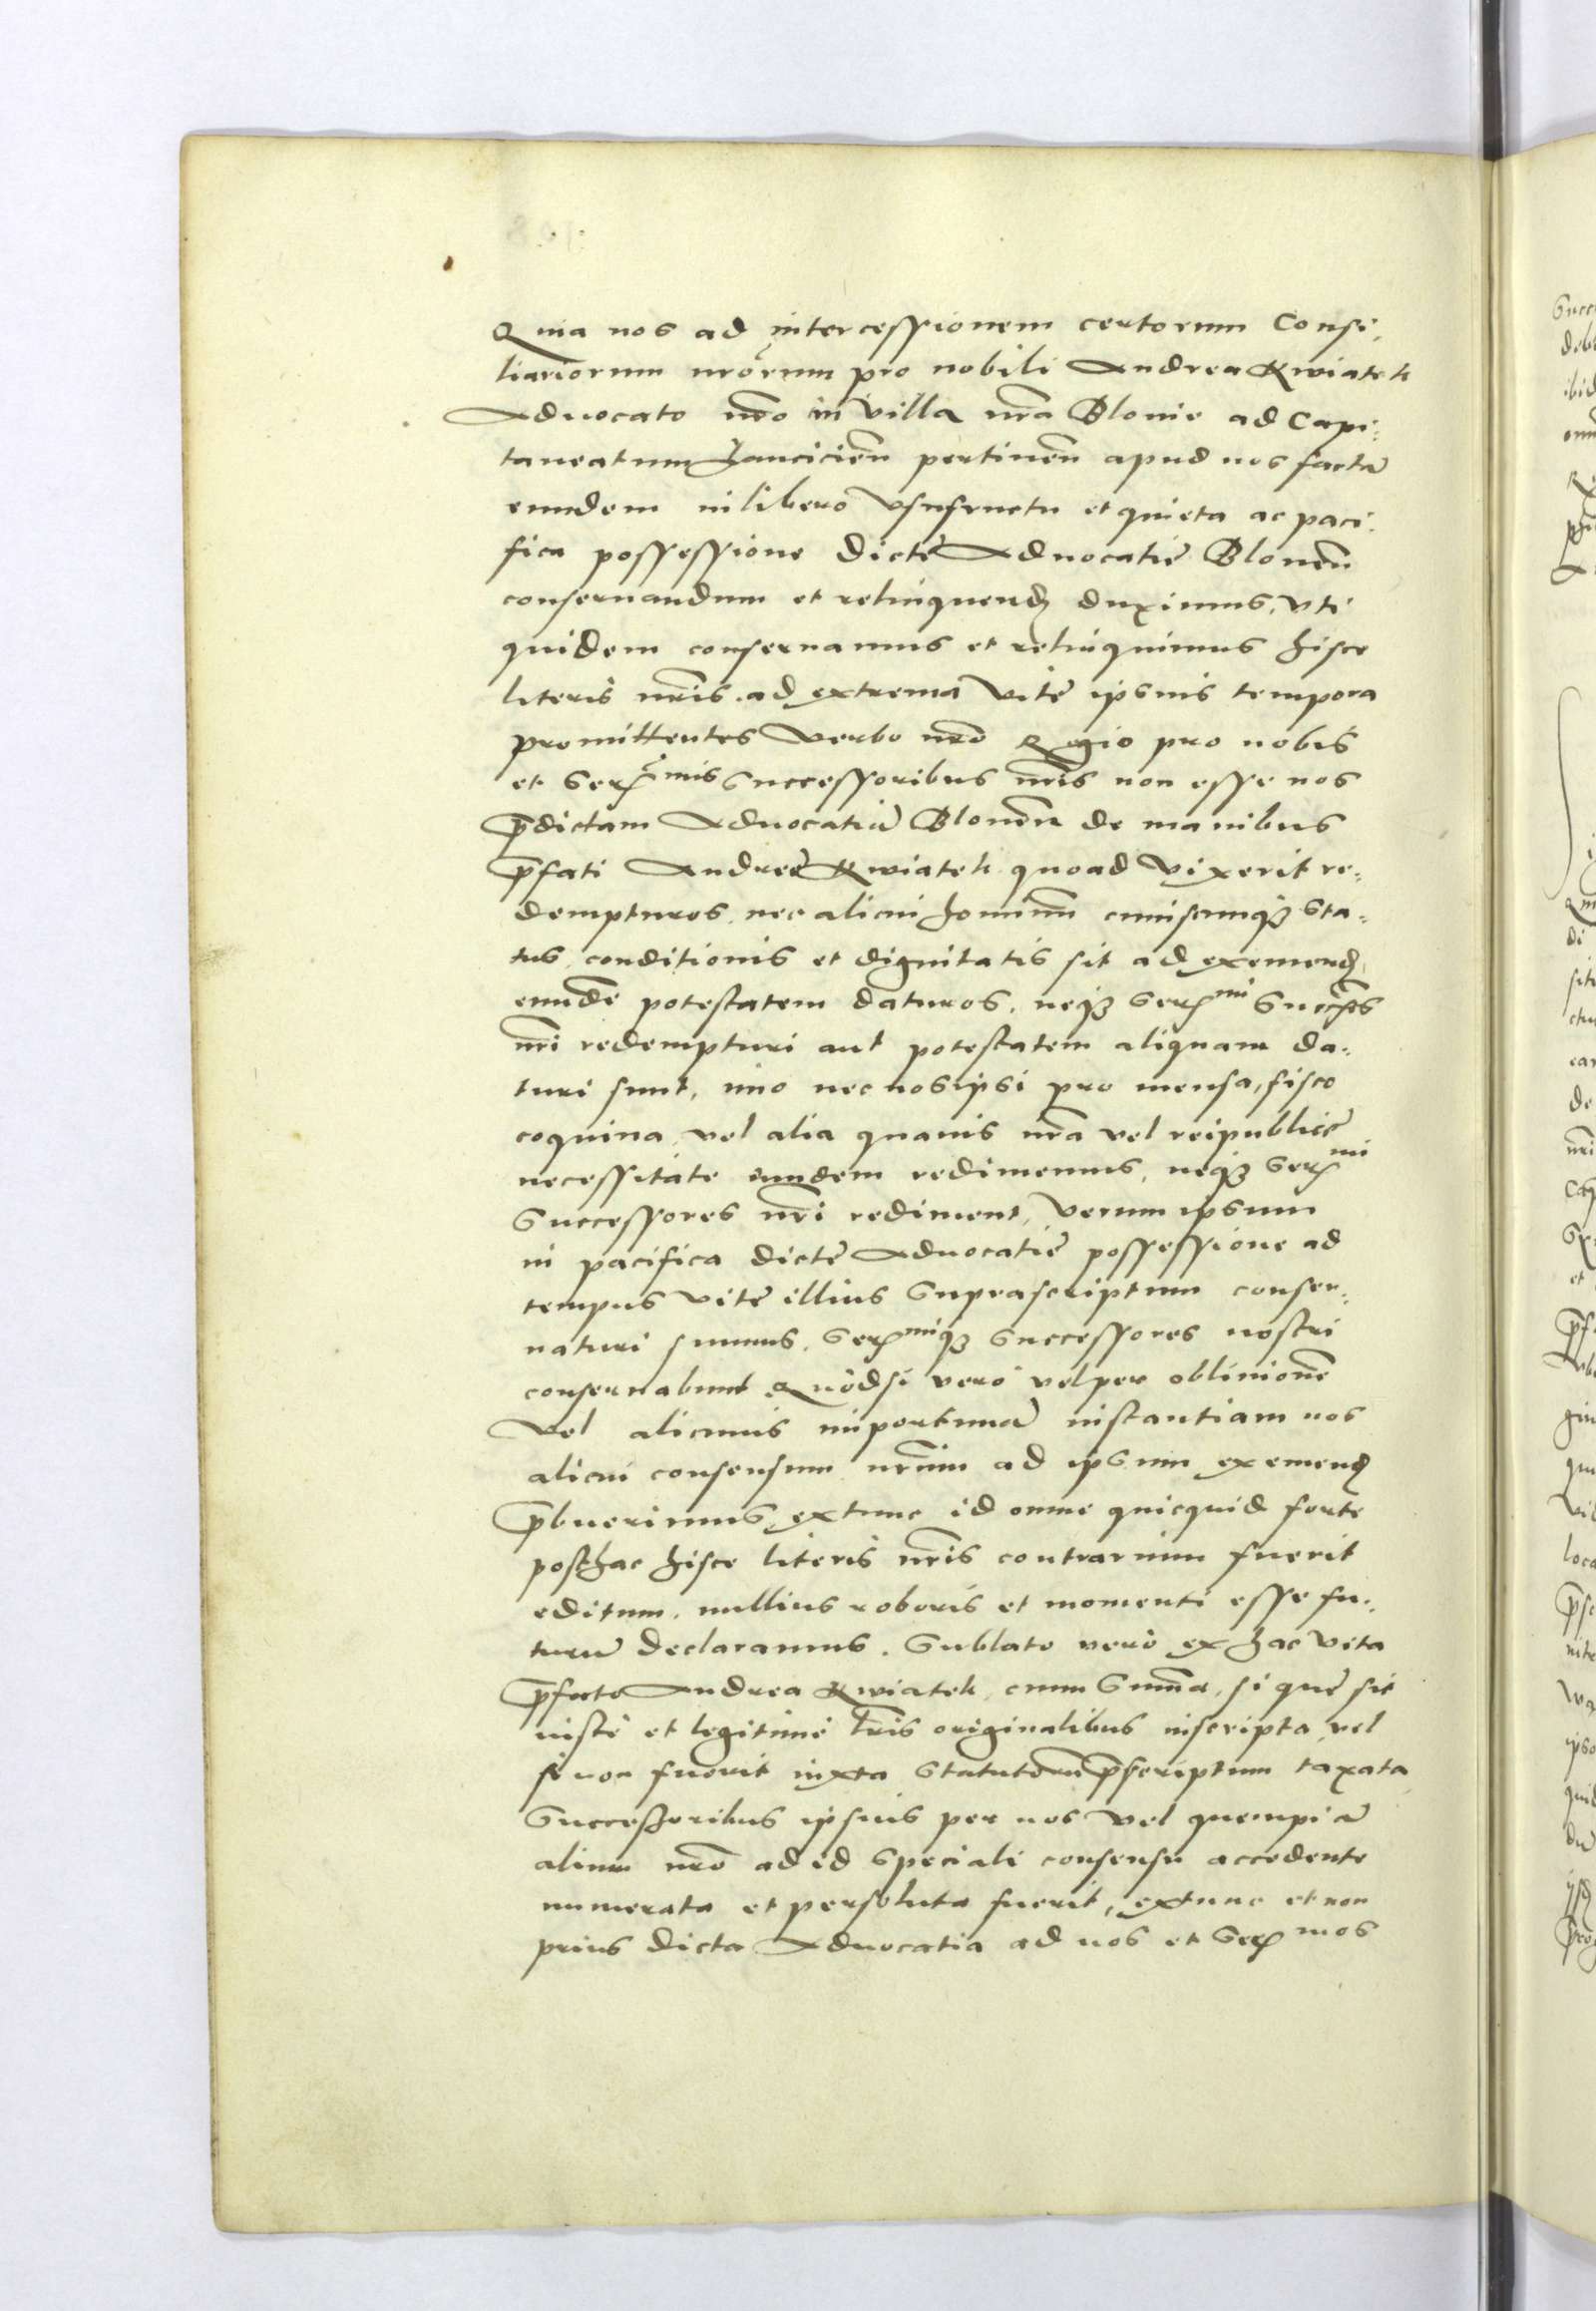 Quia nos ad intercessionem certorum Consi,
liariorum nrõrum pro nobili Andrea Kwiatek
Aduocato nrõ in villa nrã Blonie ad Capi,
taneatum Lancicieñ pertineñ apud nos factã
eundem in libero vsufructu et quieta ac paci,
fica possessione dictę Aduocatię Bloneñ
conseruandum et relinquend duximus, vti
quidem conseruamus et relinquimus hisce
literis nrĩs ad extrema vitę ipsius tempora
promittentes verbo nrõ Regio pro nobis
et Sermis Successoribus nrĩs non esse nos
p̃dictam Aduocatiã Bloneñ de manibus
p̃fati Andreę Kwiatek quoad vixerit re,
dempturos, nec alicui hominũ cuiuscumq3 sta,
tus, conditionis et dignitatis sit ad exemend
eundẽ potestatem daturos, neq3 Sermi Succ̃res
nrĩ redempturi aut potestatem aliquam da,
turi sunt, imo nec nosipsi pro mensa, fisco
coquina, vel alia quauis nrã vel reipublicę
necessitate eundem redimemus, neq3 Sermi
Successores nrĩ rediment, verum ipsum
in pacifica dictę Aduocatię possessione ad
tempus vitę illius suprascriptum conser,
uaturi sumus, Sermiq3 Successores nostri
conseruabunt Quòdsi verò vel per obliuionẽ
vel alicuius importunã instantiam nos
alicui consensum nrũm ad ipsum exemend
p̃buerimus, extunc id omne quicquid forte
posthac hisce literis nrĩs contrarium fuerit
editum, nullius roboris et momenti esse fu,
turũ declaramus. Sublato verò ex hac vita
p̃fato Andrea Kwiatek, cum Summa, si quę sit
iustè et legitimè lrĩs originalibus inscripta, vel
si non fuerit iuxta Statutorũ p̃scriptum taxata
Successoribus ipsius per nos vel quempiã
alium nrõ ad id speciali consensu accedente
numerata et persoluta fuerit, extunc et non
prius dicta Aduocatia ad nos et Sermos